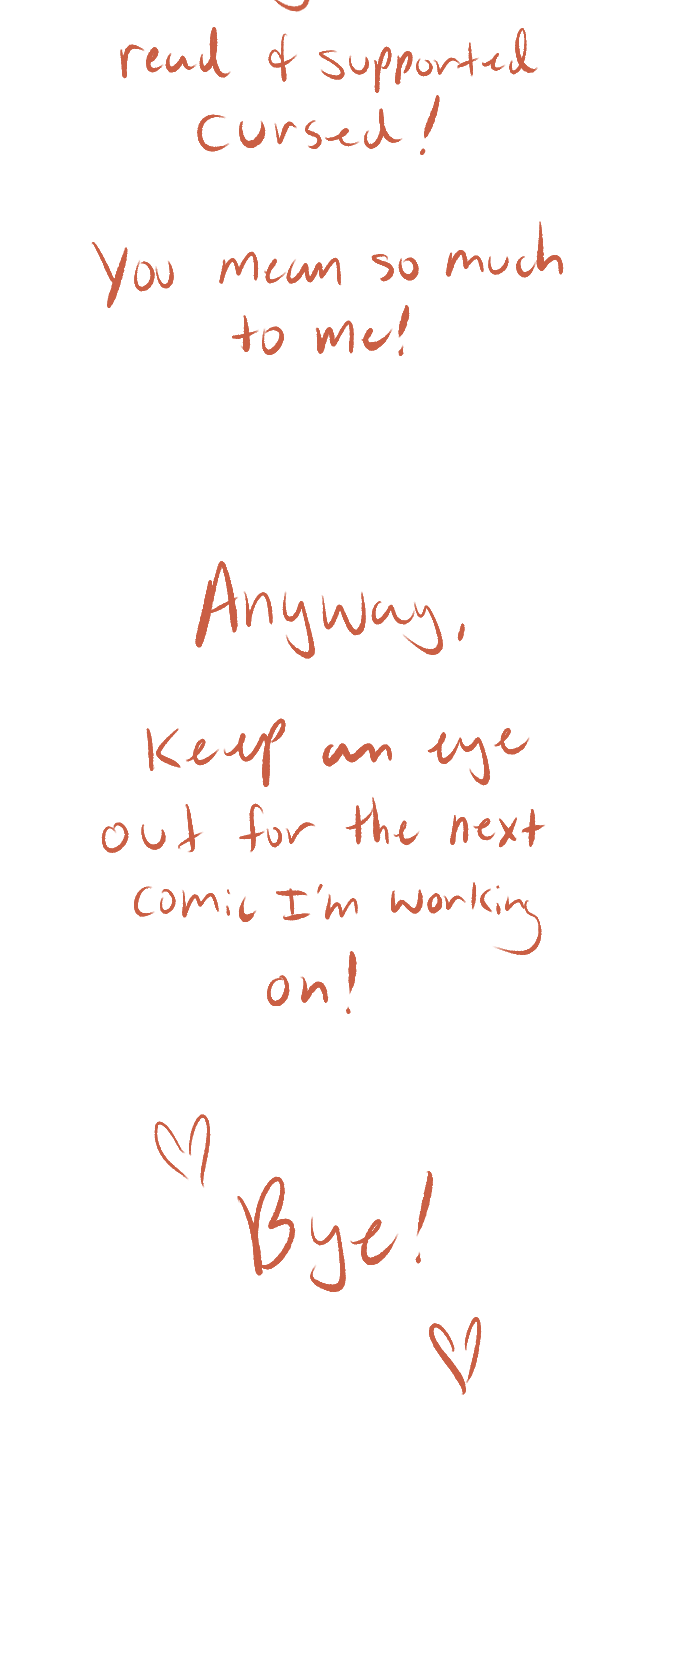 read & supported
cursed!
You mean so much
to me!
Anyway,
Keep an eye
out for the next
comic I'm working
on!
Bye!